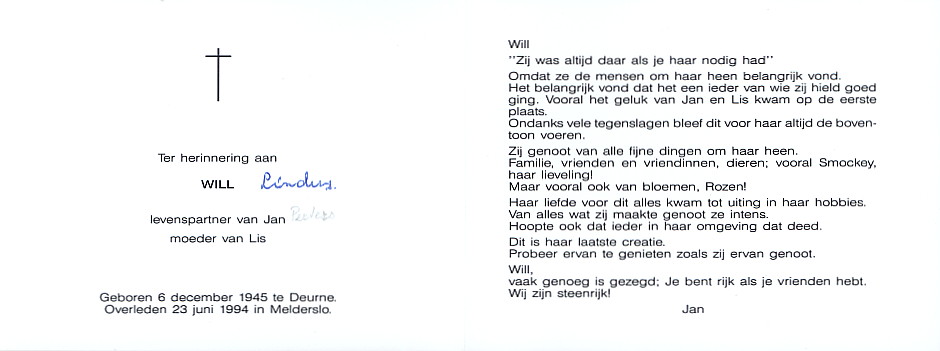 Ter herinnering aan
WILL Linders.
levenspartner van Jan Peeters
moeder van Lis
Geboren 6 december 1945 te Deurne.
Overleden 23 juni 1994 in Melderslo.
Will
"Zij was altijd daar als je haar nodig had"
Omdat ze de mensen om haar heen belangrijk vond.
Het belangrijk vond dat het een ieder van wie zij hield goed
ging. Vooral het geluk van Jan en Lis kwam op de eerste
plaats.
Ondanks vele tegenslagen bleef dit voor haar altijd de boven-
toon voeren.
Zij genoot van alle fijne dingen om haar heen.
Familie, vrienden en vriendinnen, dieren; vooral Smockey,
haar lieveling!
Maar vooral ook van bloemen, Rozen!
Haar liefde voor dit alles kwam tot uiting in haar hobbies.
Van alles wat zij maakte genoot ze intens.
Hoopte ook dat ieder in haar omgeving dat deed.
Dit is haar laatste creatie.
Probeer ervan te genieten zoals zij ervan genoot.
Will,
vaak genoeg is gezegd; Je bent rijk als je vrienden hebt.
Wij zijn steenrijk!
Jan